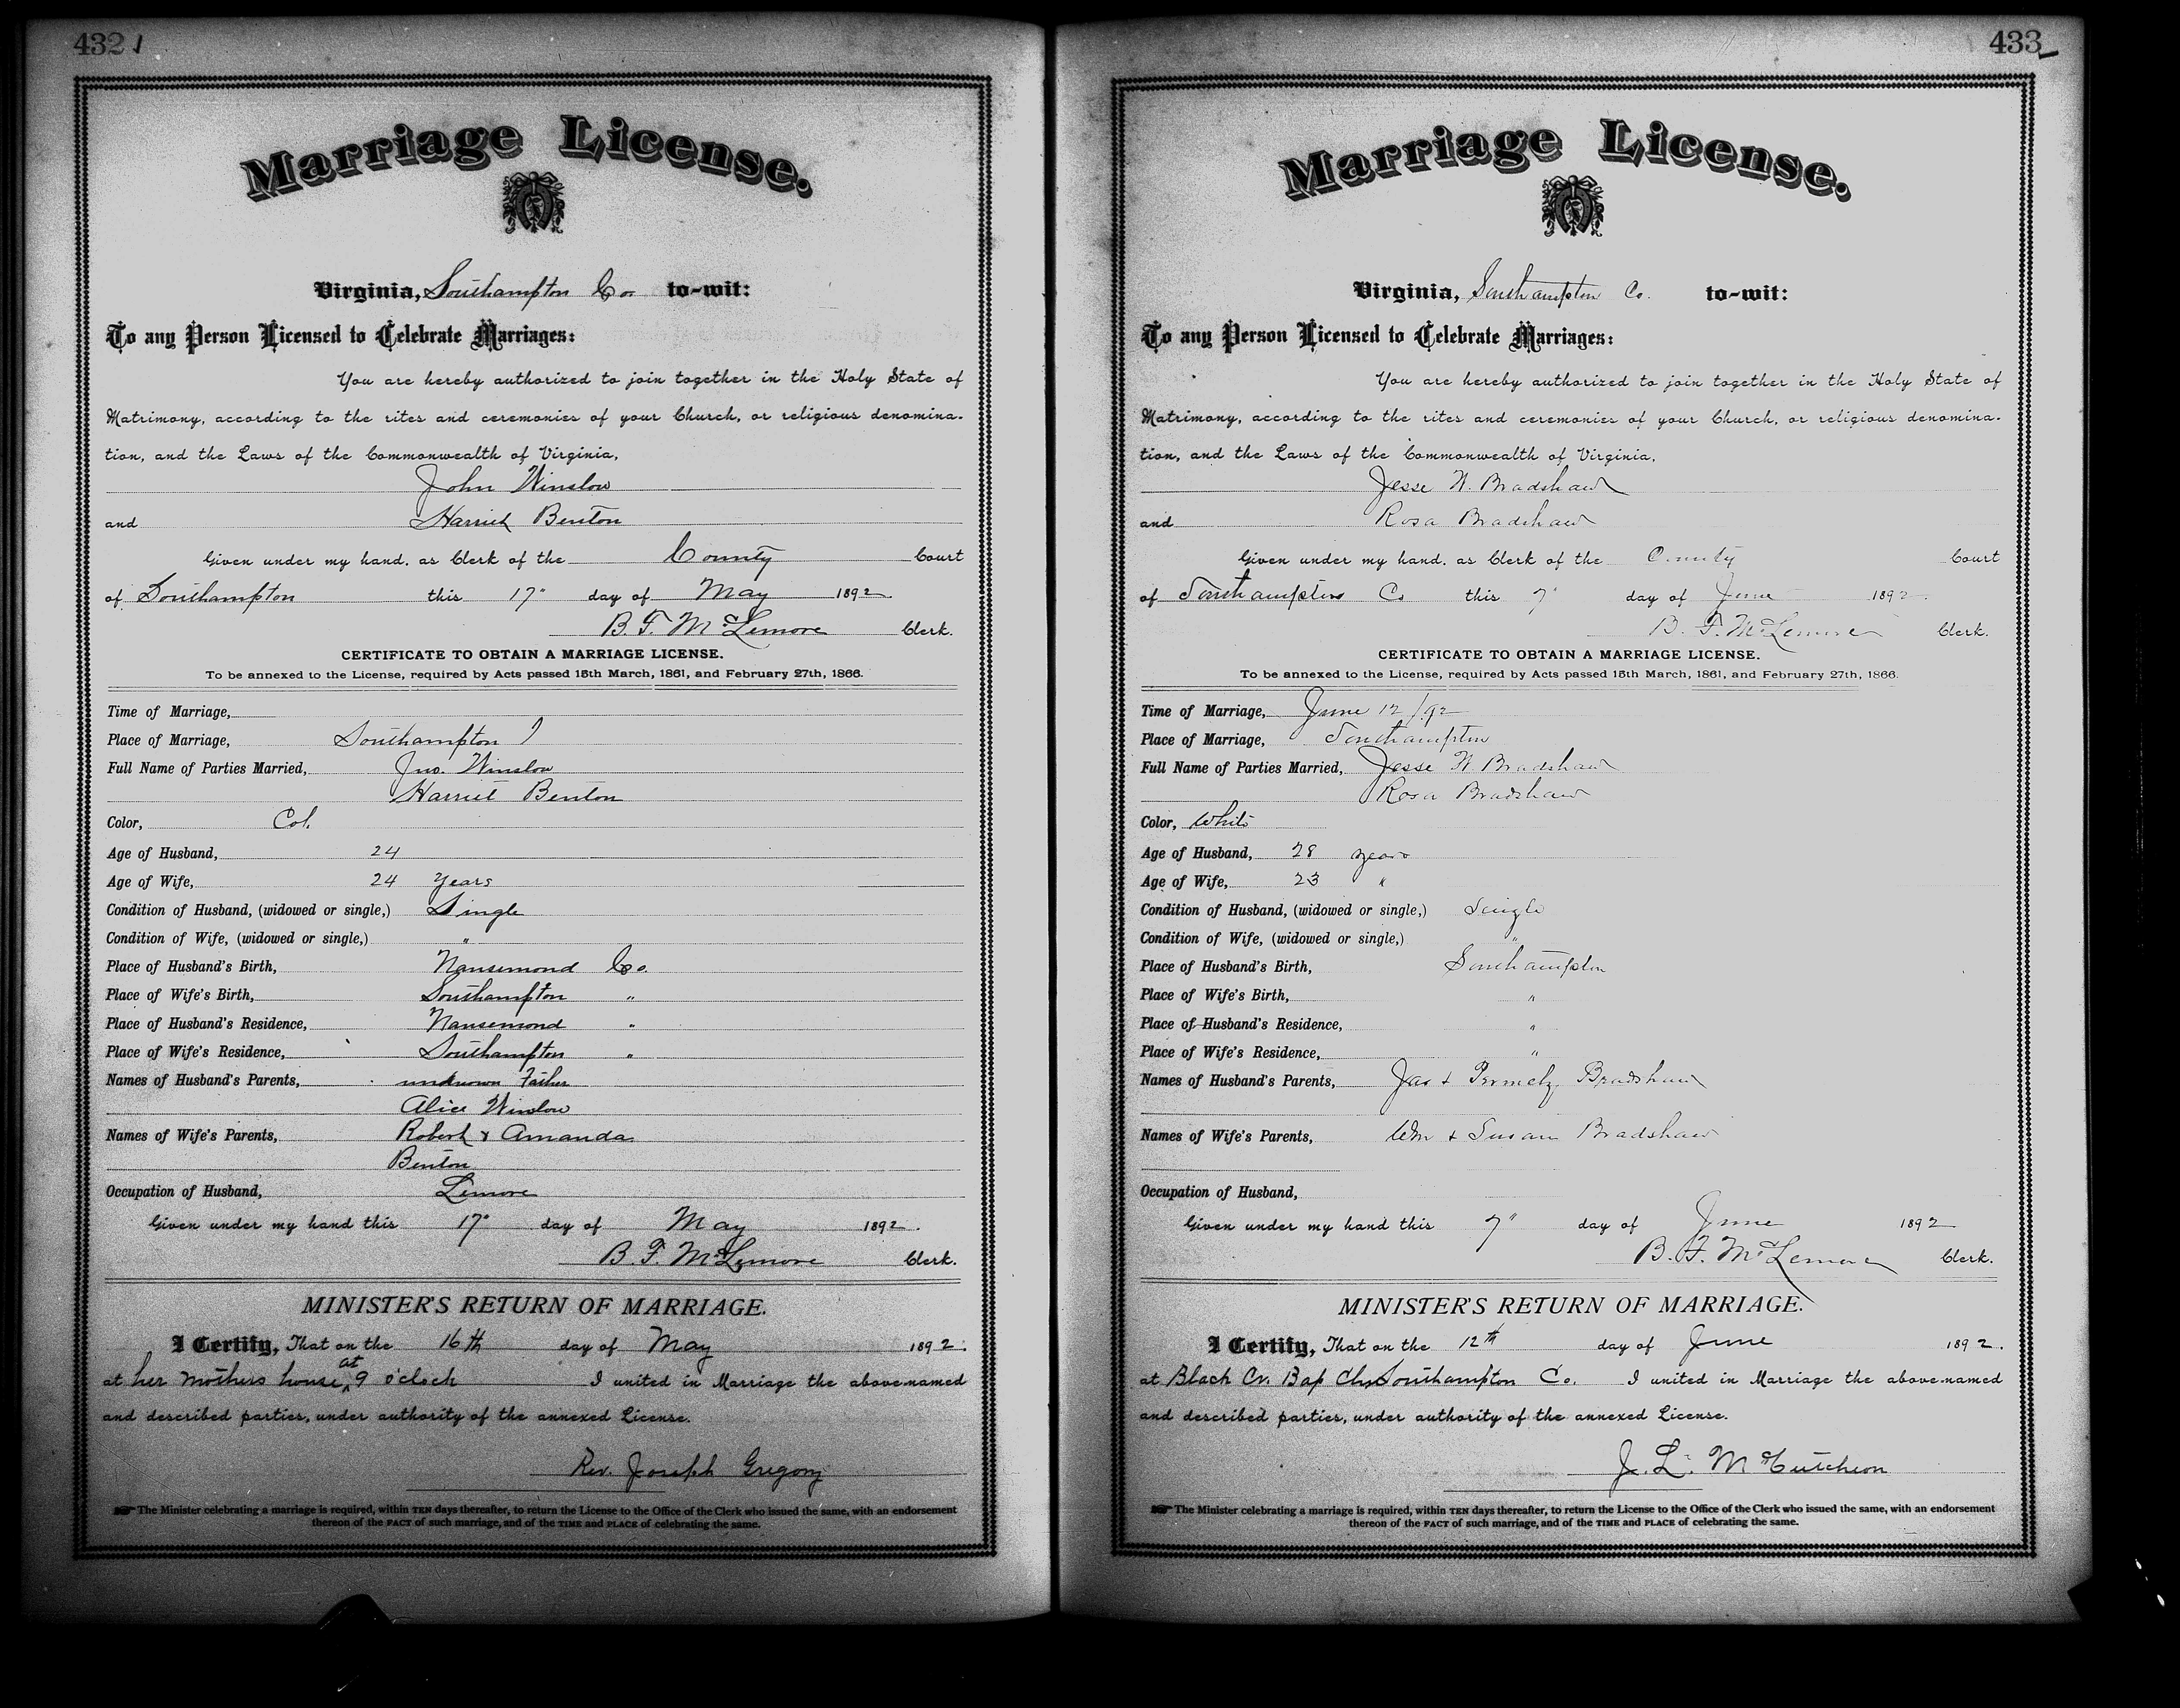 432
Marriage License.
Virginia, Southampton Co to-wit:
To any Person Licensed to Celebrate Marriages:
You are hereby authorized to join together in the Holy State of
Matrimony, according to the rites and ceremonies of your Church, or religious denomina-
tion, and the Laws of the Commonwealth of Virginia,
John Winslow
and Harriet Benton
Given under my hand, as Clerk of the County Court
of Southampton this 17" day of May 1892.
B. F. McLemore Clerk.
CERTIFICATE TO OBTAIN A MARRIAGE LICENSE.
To be annexed to the License, required by Acts passed 15th March, 1861, and February 27th, 1866.
Time of Marriage,
Place of Marriage, Southampton
Full Name of Parties Married, Jno. Winslow
Harriet Benton
Color, Col.
Age of Husband, 24
Age of Wife, 24 Years
Condition of Husband, (widowed or single,) Single
Condition of Wife, (widowed or single,) "
Place of Husband's Birth, Nansemond Co.
Place of Wife's Birth, Southampton "
Place of Husband's Residence, Nansemond "
Place of Wife's Residence, Southampton "
Names of Husband's Parents, unknown Father
Alice Winslow
Names of Wife's Parents, Robert & Amanda
Benton
Occupation of Husband,
Given under my hand this 17" day of May 1892.
B. F. McLemore Clerk.
MINISTER'S RETURN OF MARRIAGE.
I Certify, That on the 16th day of May 1892.
at her mothers house at 9 o'clock I united in Marriage the above-named
and described parties, under authority of the annexed License.
Rev. Joseph Gregory
The Minister celebrating a marriage is required, within TEN days thereafter, to return the License to the Office of the Clerk who issued the same, with an endorsement
thereon of the FACT of such marriage, and of the TIME and PLACE of celebrating the same.
433
Marriage License.
Virginia, Southampton Co. to-wit:
To any Person Licensed to Celebrate Marriages:
You are hereby authorized to join together in the Holy State of
Matrimony, according to the rites and ceremonies of your Church, or religious denomina-
tion, and the Laws of the Commonwealth of Virginia,
Jesse W. Bradshaw
and Rosa Bradshaw
Given under my hand, as Clerk of the County Court
of Southampton Co this 7" day of June 1892.
B. F. McLemore Clerk.
CERTIFICATE TO OBTAIN A MARRIAGE LICENSE.
To be annexed to the License, required by Acts passed 15th March, 1861, and February 27th, 1866.
Time of Marriage, June 12/92
Place of Marriage, Southampton
Full Name of Parties Married, Jesse W. Bradshaw
Rosa Bradshaw
Color, White
Age of Husband, 28 years
Age of Wife, 23 "
Condition of Husband, (widowed or single,) Single
Condition of Wife, (widowed or single,) "
Place of Husband's Birth, Southampton
Place of Wife's Birth, "
Place of Husband's Residence, "
Place of Wife's Residence, "
Names of Husband's Parents, Jas & Bradshaw
Names of Wife's Parents, Wm & Susan Bradshaw
Occupation of Husband,
Given under my hand this 7" day of June 1892
B. F. McLemore Clerk.
MINISTER'S RETURN OF MARRIAGE.
I Certify, That on the 12th day of June 1892.
at Black Cr. Bap Ch. Southampton Co. I united in Marriage the above-named
and described parties, under authority of the annexed License.
J. L. McCutcheon
The Minister celebrating a marriage is required, within TEN days thereafter, to return the License to the Office of the Clerk who issued the same, with an endorsement
thereon of the FACT of such marriage, and of the TIME and PLACE of celebrating the same.